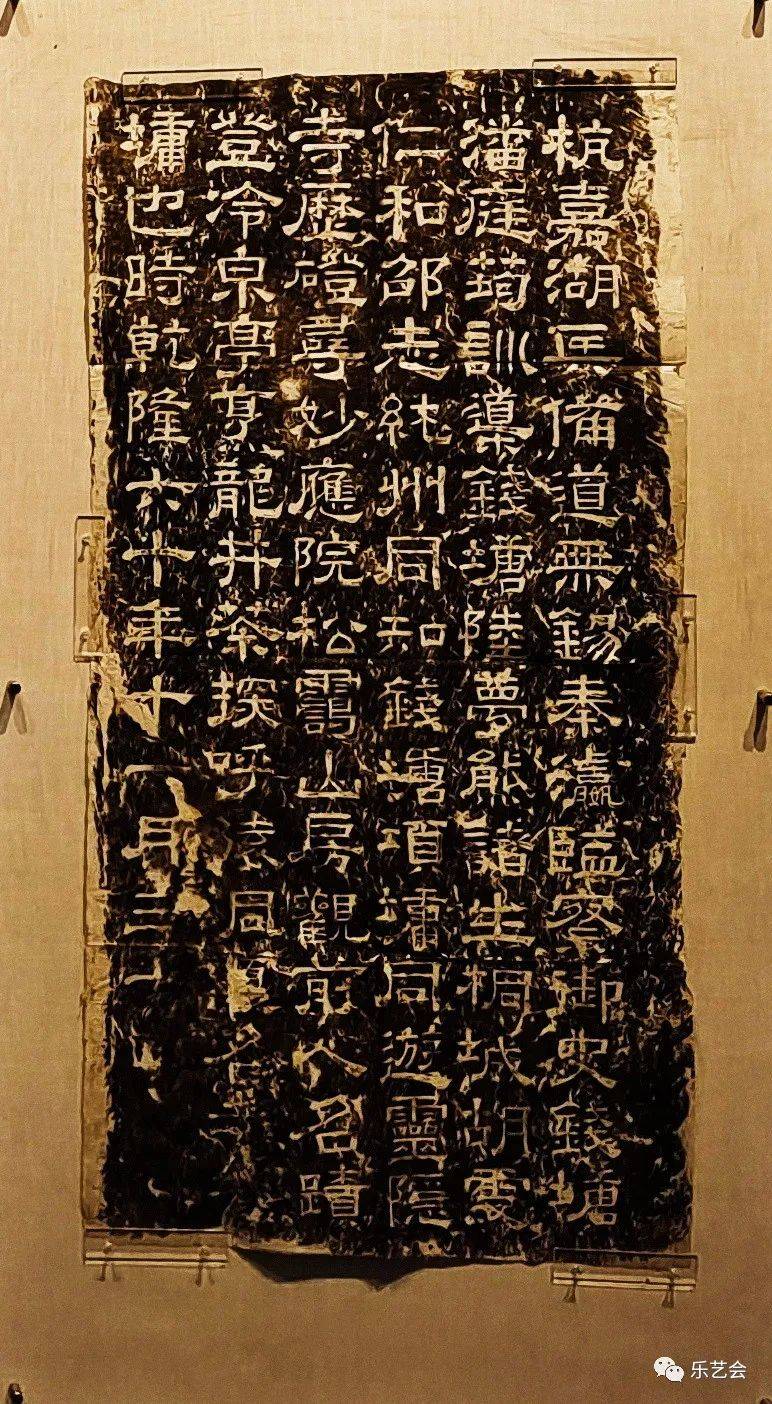 杭嘉湖兵備道無錫秦瀛監察御史錢塘
潘庭筠訓導錢塘陸夢熊諸生桐城胡虔
仁和邵志純州同知錢塘項墉同遊靈隱
寺歷磴尋妙應院松靄山房觀前人名蹟
登冷泉亭烹龍井茶探呼猿洞題名者
墉也時乾隆六十年十一月三十
乐艺会